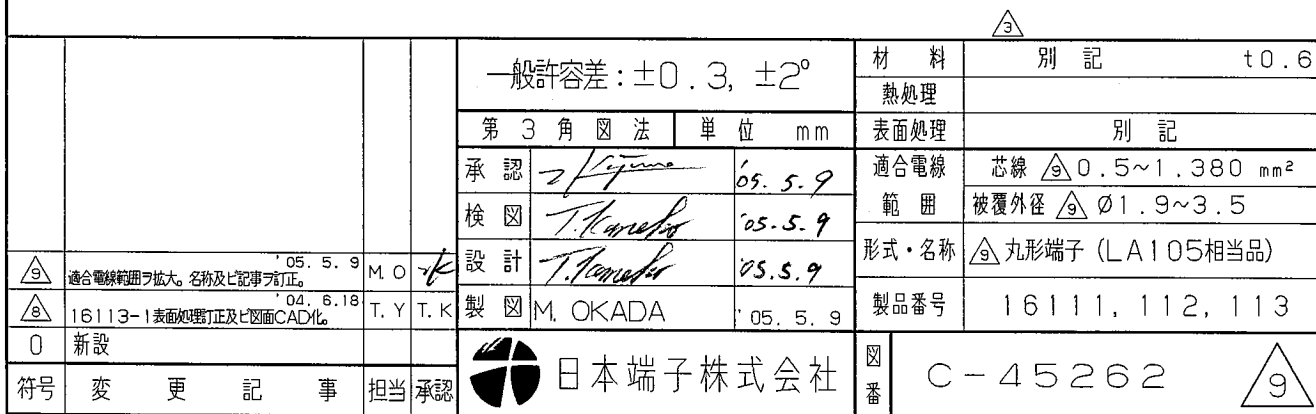 3
一般許容差:±0.3, ±2°
第3角図法 単位 mm
承認 '05. 5. 9
検図 T. Kaneko '05. 5. 9
設計 T. Kaneko '05. 5. 9
製図 M. OKADA '05. 5. 9
日本端子株式会社
材料 別記 t0.6
熱処理
表面処理 別記
適合電線範囲 芯線 9 0.5~1.380 mm²
被覆外径 9 Ø1.9~3.5
形式・名称 9 丸形端子 (LA105相当品)
製品番号 16111, 112, 113
図番 C-45262 9
9 適合電線範囲ヲ拡大。名称及ビ記事ヲ訂正。 '05. 5. 9 M. O
8 16113-1表面処理訂正及ビ図面CAD化。 '04. 6.18 T. Y T. K
0 新設
符号 変更記事 担当 承認